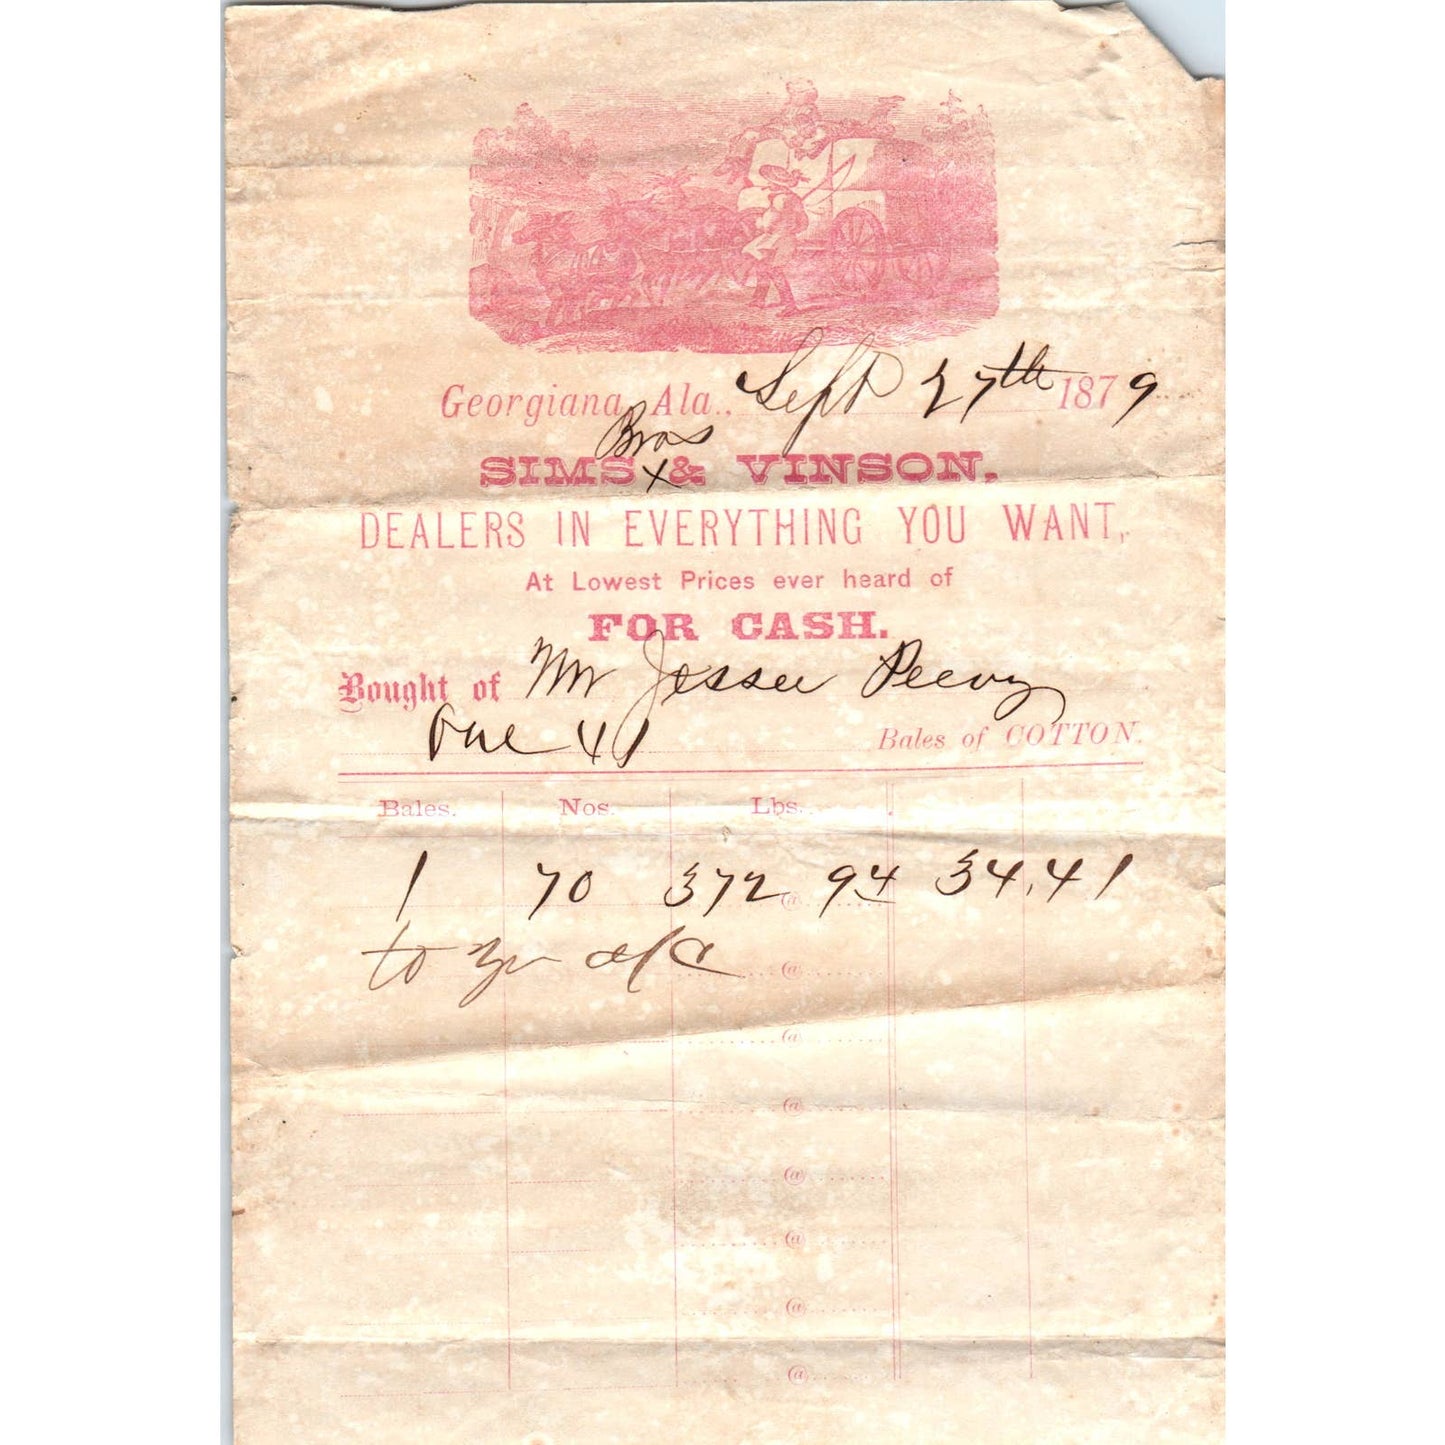 Georgiana, Ala., Sept 27th 1879
Bros
SIMS x & VINSON,
DEALERS IN EVERYTHING YOU WANT,
At Lowest Prices ever heard of
FOR CASH.
Bought of Mr Jessee Peevy
One Bales of COTTON.
Bales. Nos. Lbs.
1 70 372 @ 9 4 34.41
to yr a/c @
@
@
@
@
@
@